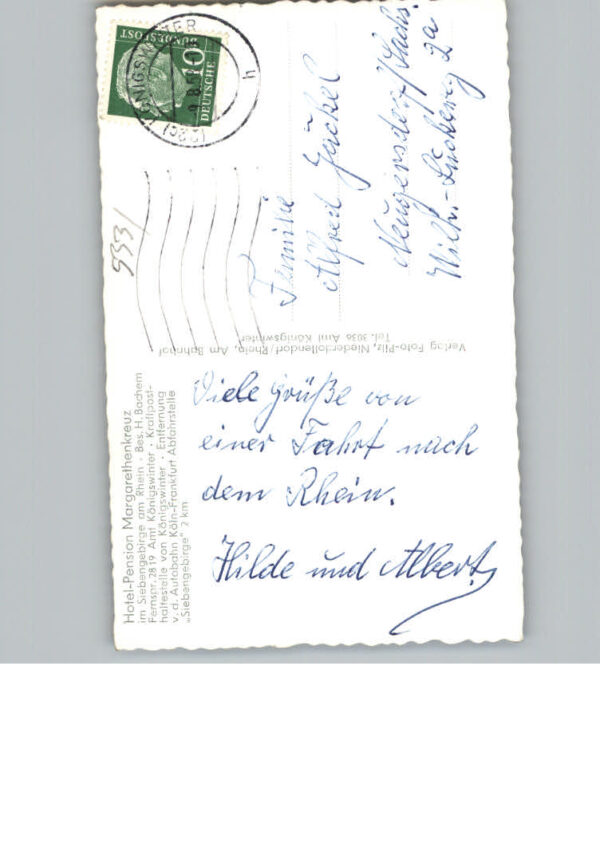 Hotel-Pension Margarethenkreuz
im Siebengebirge am Rhein · Bes. H. Bachem
Fernspr. 2819 Amt Königswinter · Kraftpost-
haltestelle von Königswinter · Entfernung
v. d. Autobahn Köln-Frankfurt Abfahrstelle
„Siebengebirge" 2 km
Viele Grüße von
einer Fahrt nach
dem Rhein.
Hilde und Albert
Verlag Foto-Pilz, Niederdollendorf/Rhein, Am Bahnhof
Tel. 3036 Amt Königswinter
DEUTSCHE
BUNDESPOST
10
(22c) KÖNIGSWINTER
h
933/
Familie
Alfred Jäckel
Neugersdorf/Sachs.
Wilh.- 2a